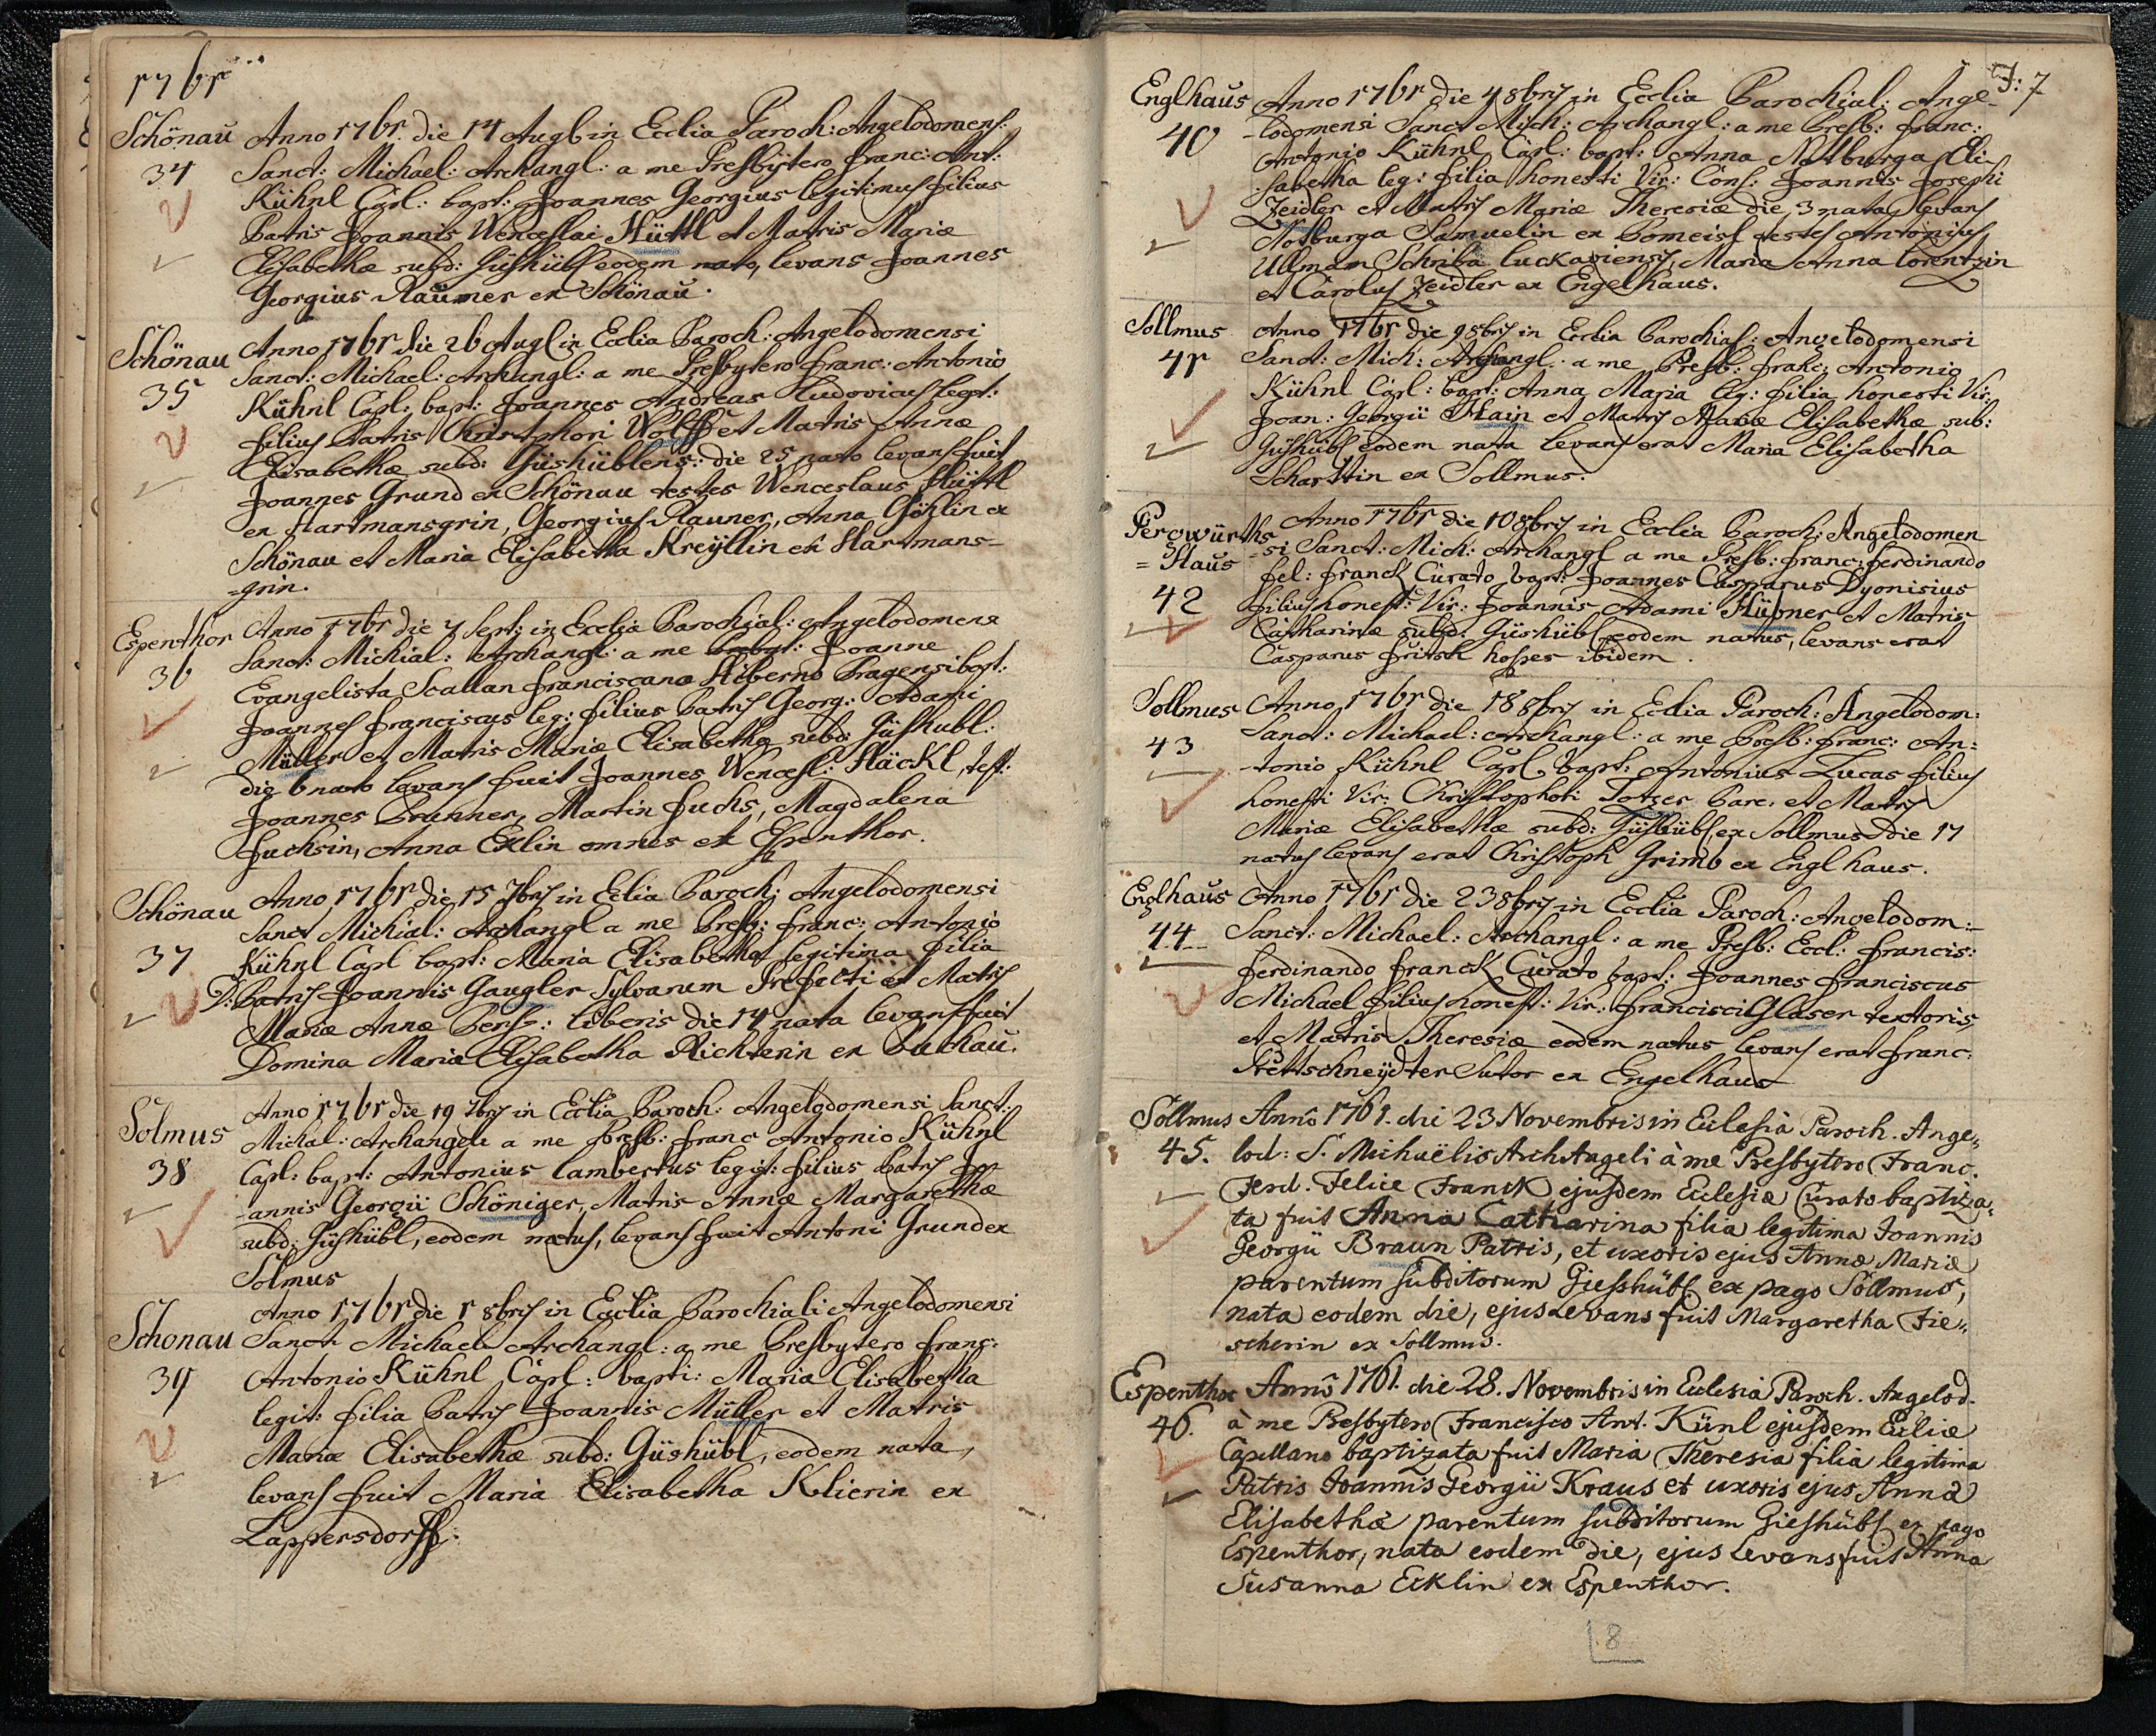 1761
Schönau Anno 1761. die 14 Augb in Ecclia Paroch: Angelodomens:
34 Sanct: Michael: Archangl: a me Presbytero Franc: Ant:
Kühnl Capl: bapt: Joannes Georgius legitimus filius
Patris Joannis Wenceslai Hüttl et Matris Mariæ
Elisabethæ subd: Güshübl eodem nato, levans Joannes
Georgius Raumer ex Schönau.
Schönau Anno 1761 die 26 Augl in Ecclia Paroch: Angelodomensi
35 Sanct: Michael: Archangl: a me Presbytero Franc: Antonio
Kühnl Capl: bapt: Joannes Andreas Ludovicus legt:
filius Patris Christophori Wolff et Matris Annæ
Elisabethæ subd: Güshüblens: die 25 nato levans fuit
Joannes Grund ex Schönau testes Wenceslaus Hüttl
ex Hartmansgrin, Georgius Rauner, Anna Göhlin ex
Schönau et Maria Elisabetha Kreÿllin ex Hartmans=
=grin.
Espenthor Anno 1761 die 7 Sept: in Ecclia Parochial: Angelodomens
36 Sanct: Michial: Archangl: a me Joanne
Evangelista Scallan Franciscano Hiberno Pragensi bapt:
Joannes Franciscus leg: filius Patris Georg: Adami
Müller et Matris Mariæ Elisabethæ subd: Güshubl:
die 6 nato levans fuit Joannes Wencesl: Häckl, test:
Joannes Brunner, Martin Fuchs, Magdalena
Fuchsin, Anna Exlin omnes ex Espenthor.
Schönau Anno 1761 die 15 7bris in Eclia Paroch: Angelodomensi
37 Sanct Michial: Archangl a me Presb: Franc: Antonio
Kühnl Capl bapt: Maria Elisabetha legitima filia
D: Patris Joannis Gaugler Sylvarum Prefecti et Matris
Mariæ Annæ Pens: liberis die 14 nata levans fuit
Domina Maria Elisabetha Richterin ex Buchau.
Solmus Anno 1761 die 19 7bris in Ecclia Paroch: Angelodomensi Sanct:
38 Michal: Archangeli a me Presb: Franc Antonio Kühnl
Capl: bapt: Antonius Lambertus legit: filius Patris Jo
-annis Georgii Schöniger, Matris Annæ Margarethæ
subd: Güshübl, eodem natus, levans fuit Antoni Grund ex
Solmus
Schonau Anno 1761 die 1 8bris in Ecclia Parochiali Angelodomensi
39 Sanct Michael Archangl: a me Presbytero Franc:
Antonio Kühnl Capl: bapti: Maria Elisabetha
legit: filia Patris Joannis Müller et Matris
Mariæ Elisabethæ subd: Güshübl, eodem nata,
levans fuit Maria Elisabetha Klierin ex
Lappersdorff.
7
Englhaus Anno 1761 die 4 8bris in Ecclia Parochial: Ange-
40 -lodomensi Sanct Mich: Archangl: a me Presb: Franc:
Antonio Kühnl Capl: bapt: Anna Notburga Eli-
-sabetha leg: filia honesti Vir: Cons: Joannis Josephi
Zeidler et Matris Mariæ Theresiæ die 3 nata, levans
Notburga Samuelin ex Pomeisl testes Antonius
Ullmam Schriba luckaviensis, Maria Anna Lorentzin
et Carolus Zeidler ex Engelhaus.
Sollmus Anno 1761 die 9 8bris in Ecclia Parochial: Angelodomensi
41 Sanct: Mich: Archangl: a me Presb: Franc: Antonio
Kühnl Capl: bapt: Anna Maria leg: filia honesti Vir:
Joan: Georgii Hain et Matris Mariæ Elisabethæ sub:
Güshübl eodem nata levans erat Maria Elisabetha
Scharttin ex Sollmus.
Percwürths Anno 1761 die 10 8bris in Ecclia Paroch: Angelodomen
=Haus =si Sanct: Mich: Archangl a me Presb: Franc: Ferdinando
42 Fel: Franck Curato bapt: Joannes Casparus Dyonisius
filius honest: Vir: Joannis Adami Hübner et Matris
Catharinæ subd: Güshübl eodem natus, levans erat
Casparus Fritsch hospes ibidem.
Sollmus Anno 1761 die 18 8bris in Eclia Paroch: Angelodom:
43 Sanct: Michael: Archangl: a me Presb: Franc: An=
-tonio Kühnl Capl bapt: Antonius Lucas filius
honesti Vir: Christophori Totzer Pare. et Matris
Mariæ Elisabethæ subd: Güshübl, ex Sollmus die 17
natus levans erat Christoph Grimb ex Englhaus.
Englhaus Anno 1761 die 23 8bris in Ecclia Paroch: Angelodom:
44 Sanct: Michael: Archangl: a me Presb: Eccl: Francis:
Ferdinando Franck Curato bapt: Joannes Franciscus
Michael filius honest: Vir: Francisci Glaser textoris
et Matris Theresiæ eodem natus levans erat Franc:
Prettschneÿdter Sutor ex Engelhaus
Sollmus Anno 1761. die 23 Novembris in Eclesia Paroch. Ange=
45. lod: S. Michaëlis ArchAngeli à me Presbytero Franc.
Ferd. Felice Franck ejusdem Eclesiæ Curato baptiza=
ta fuit Anna Catharina filia legitima Joannis
Georgii Braun Patris, et uxoris ejus Annæ Mariæ
parentum subditorum Gieshübl ex pago Sollmus,
nata eodem die, ejus Levans fuit Margaretha Fie=
scherin ex Sollmus.
Espenthor Anno 1761. die 28. Novembris in Eclesia Paroch. Angelod.
46. à me Presbytero Francisco Ant. Künl ejusdem Ecliæ
Capellano baptizata fuit Maria Theresia filia legitima
Patris Joannis Georgii Kraus et uxoris ejus Annæ
Elisabethæ parentum subditorum Gieshübl ex pago
Espenthor, nata eodem die, ejus Levans fuit Anna
Susanna Ecklin ex Espenthor.
8